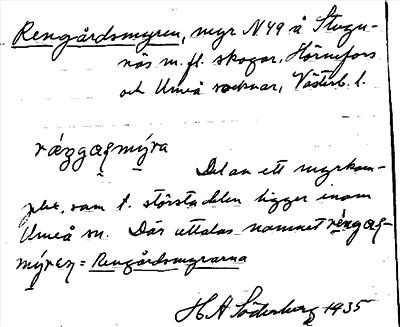 Rengårdsmyren, myr N49 å Stugu-
näs m. fl. skogar, Hörnefors
och Umeå socknar, Västerb. l.
réngaṣmýra
Del av ett myrkom-
plex, som t. största delen ligger inom
Umeå sn. Där uttalas namnet réngaṣ-
mýrεn = Rengårdsmyrarna
H A Söderberg 1935